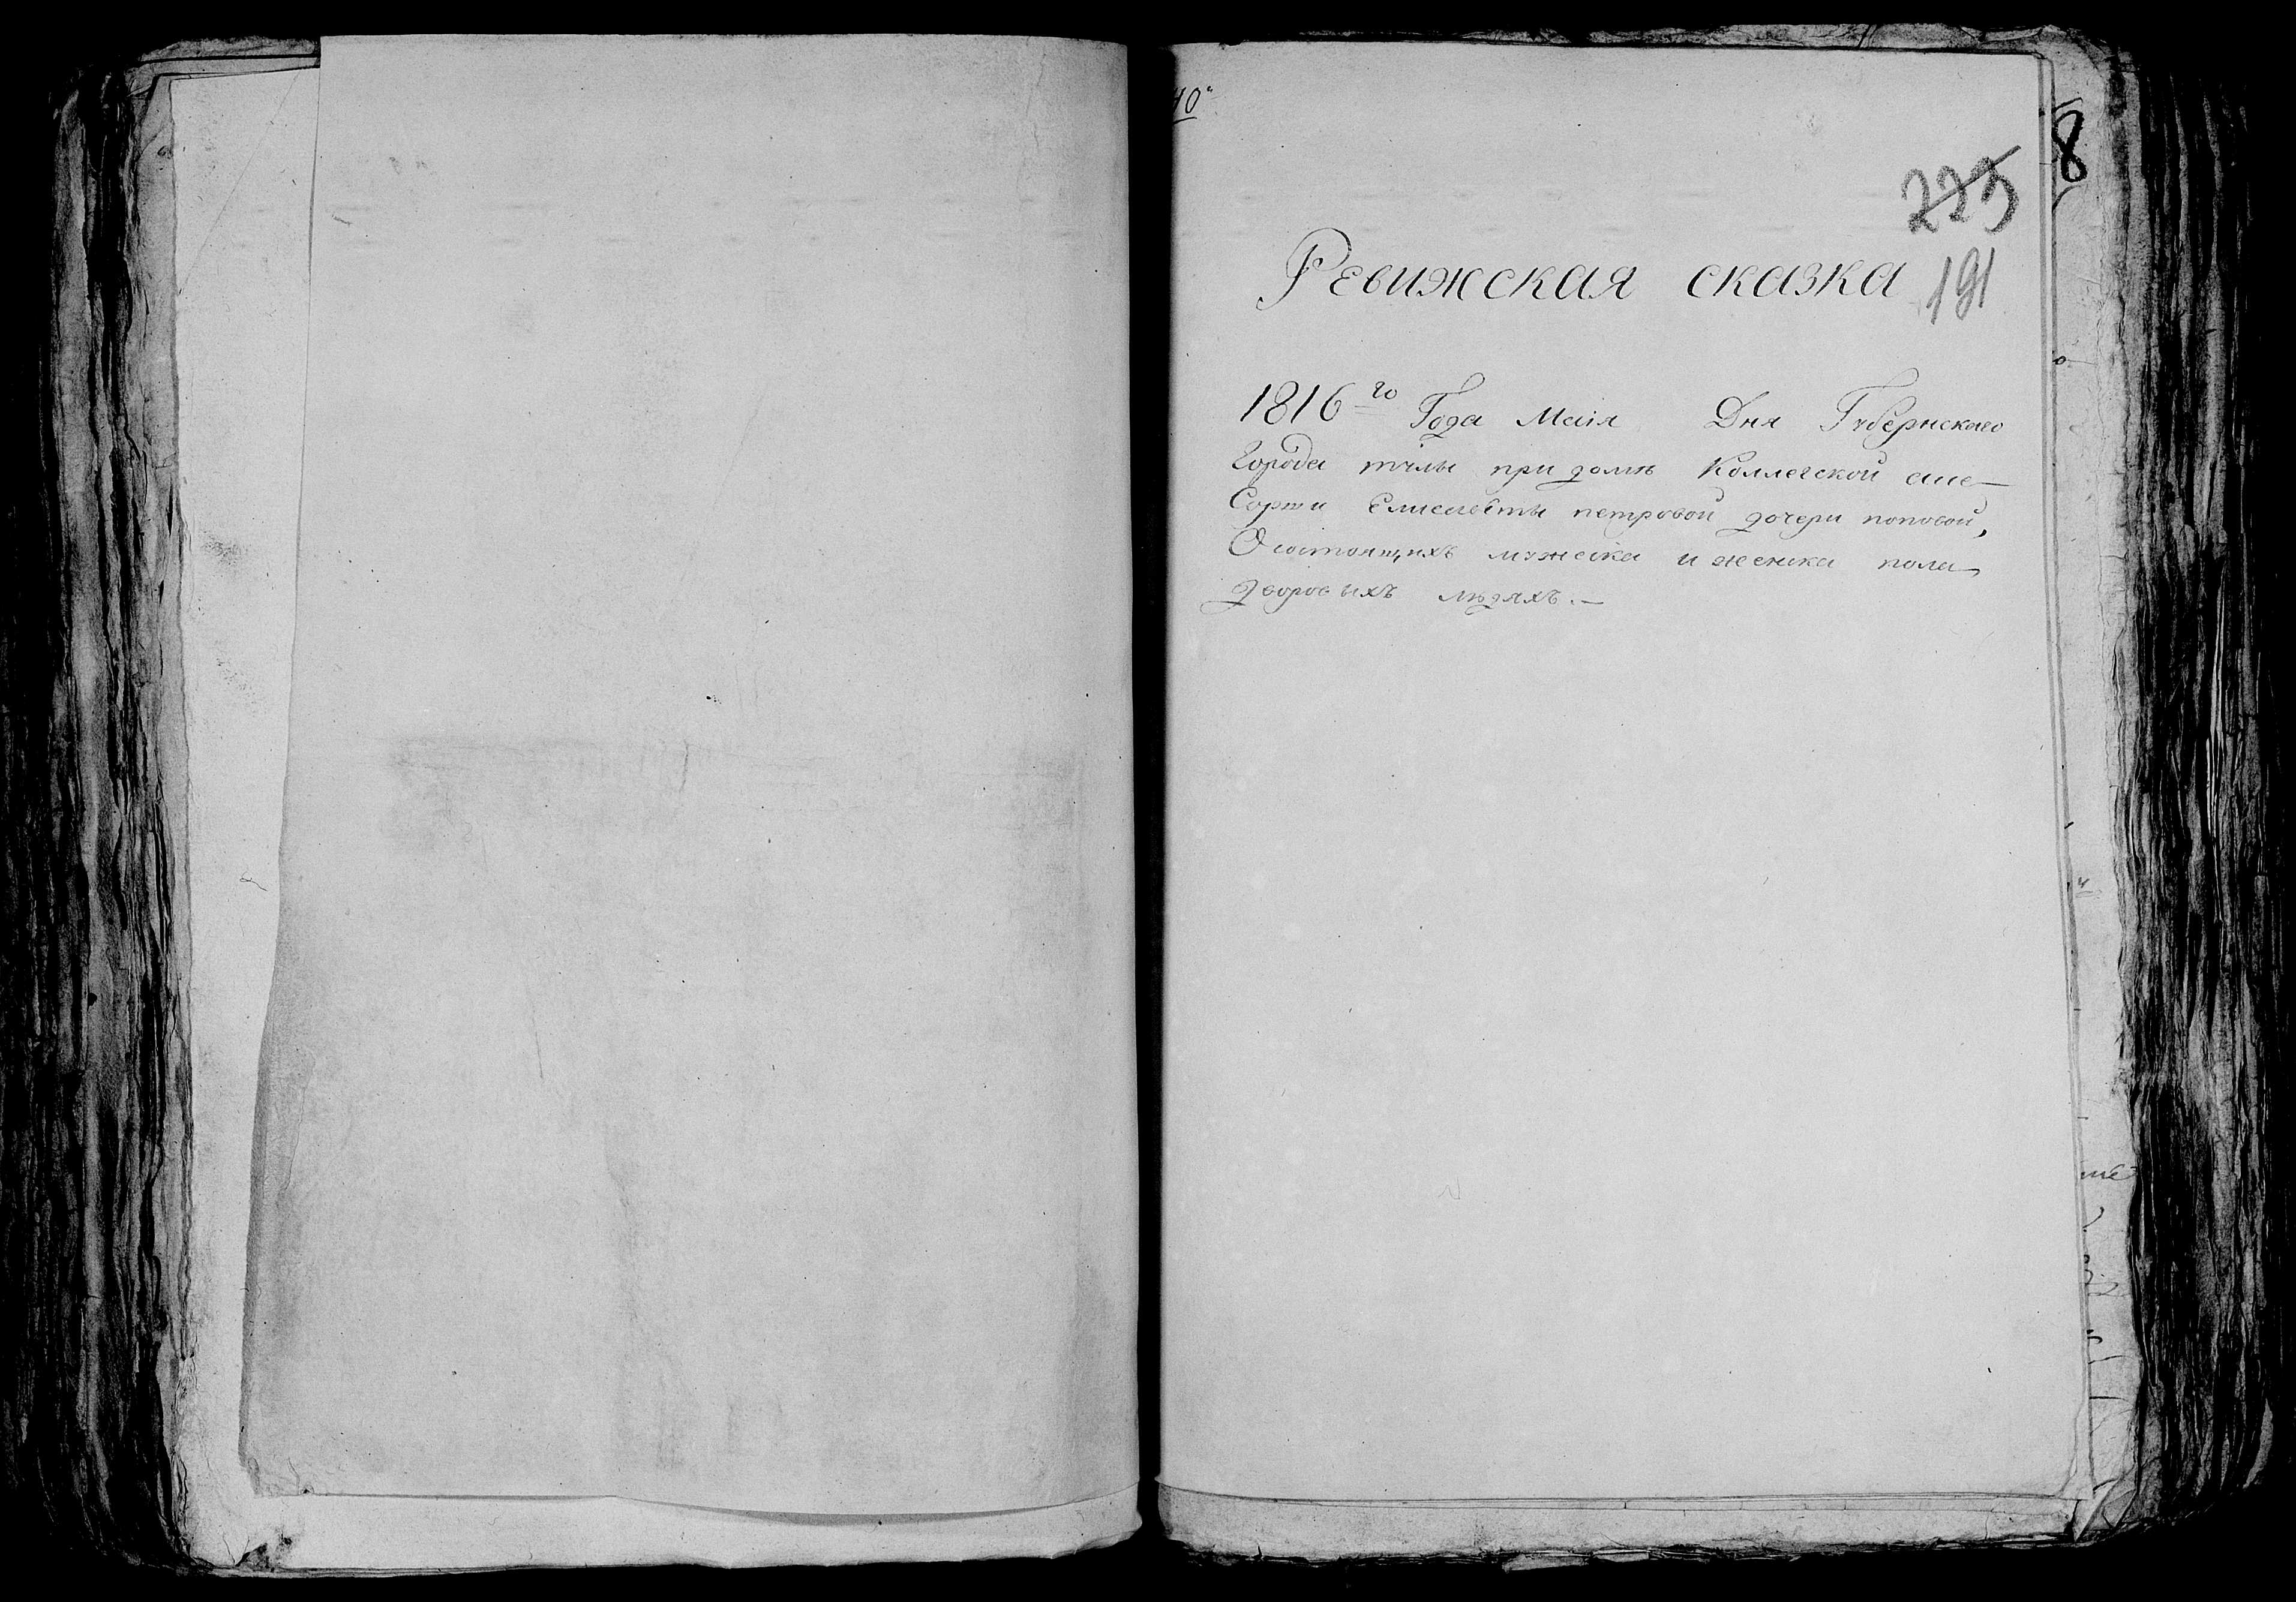 40
225
Ревижская сказка
191
1816го Года Маія Дня Губернскаго
Города тулы при доме Коллегской асе-
Сорши Елисаветы петровой дочери поповой,
О состоящихъ мужеска и женска пола
дворовыхъ людяхъ.—
8